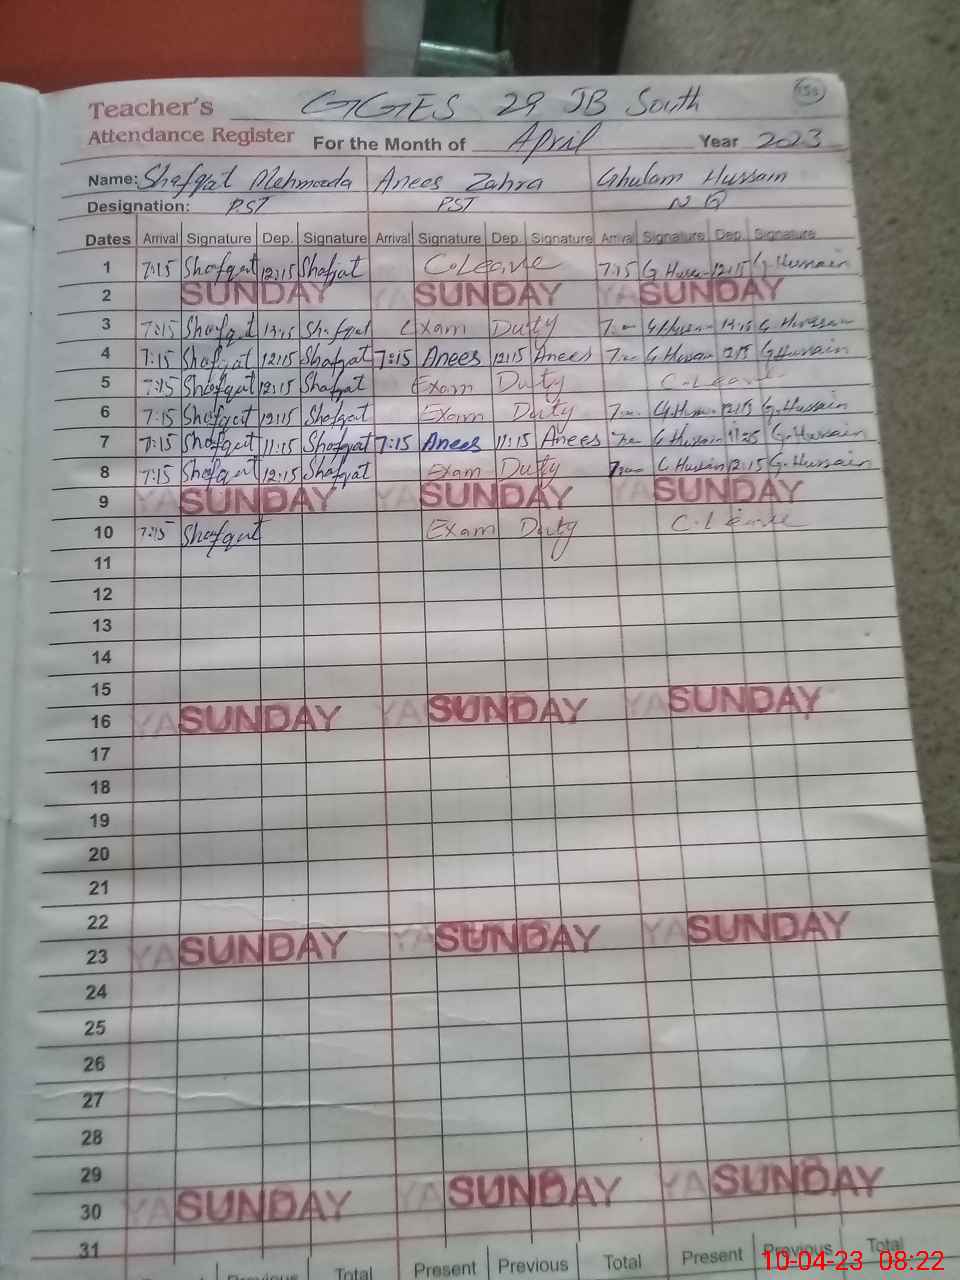 Teacher's GGES 29 JB South 155
Attendance Register For the Month of April Year 2023
Name: Shafqat Mehmooda Anees Zahra Ghulam Hussain
Designation: PST PST N Q
Dates Arrival Signature Dep. Signature Arrival Signature Dep Signature Arrival Signature Dep Signature
1 7:15 Shafqat 12:15 Shafqat C.Leave 7:15 G Hussain 12:15 G. Hussain
2 SUNDAY SUNDAY SUNDAY
3 7:15 Shafqat Shafqat Exam Duty G Hussain G. Hussain
4 7:15 Shafqat 12:15 Shafqat 7:15 Anees 12:15 Anees G Hussain 12:15 G. Hussain
5 7:15 Shafqat 12:15 Shafqat Exam Duty C.Leave
6 7:15 Shafqat 12:15 Shafqat Exam Duty 12:15 G. Hussain
7 7:15 Shafqat 11:15 Shafqat 7:15 Anees 11:15 Anees G Hussain G. Hussain
8 7:15 Shafqat 12:15 Shafqat Exam Duty G Hussain 12:15 G. Hussain
9 SUNDAY SUNDAY SUNDAY
10 7:15 Shafqat Exam Duty C.Leave
11
12
13
14
15
16 SUNDAY SUNDAY SUNDAY
17
18
19
20
21
22
23 SUNDAY SUNDAY SUNDAY
24
25
26
27
28
29
30 SUNDAY SUNDAY SUNDAY
31
Present Previous Total Present Previous Total Present Previous Total
10-04-23 08:22